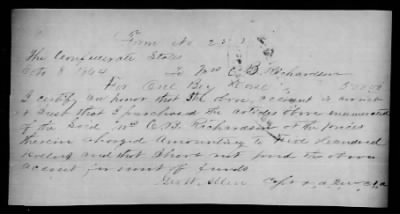 Form No 22
The Confederate States
Octo 8 1864 To Mrs C. B. Richardson
For One Bay Horse
I certify on honor that the above account is correct
& Just that I purchased the articles above enumerated
of the Said Mrs C. B. Richardson at the prices
therein charged Amounting to Five Hundred
Dollars and that I have not paid the above
account for want of funds
Geo W. Allen Capt &